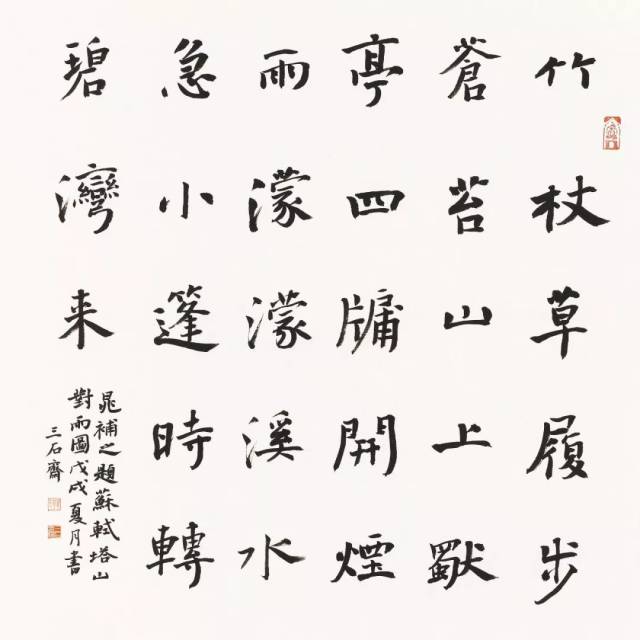 竹杖草履步
蒼苔山上獨
亭四牖開煙
雨濛濛溪水
急小篷時轉
碧灣来
晁補之題蘇軾塔山
對雨圖戊戌夏月書
三石齋